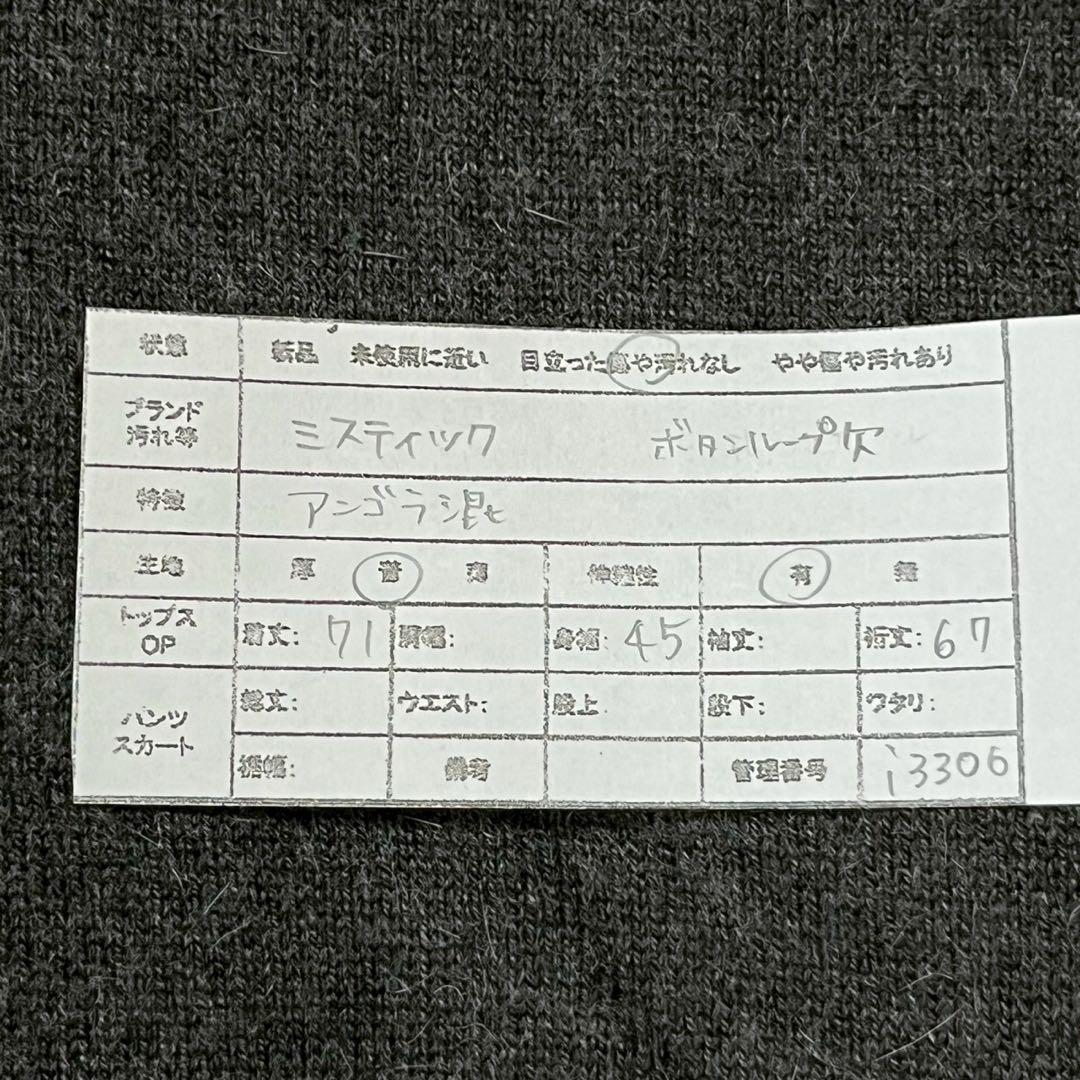 状態 新品 未使用に近い 目立った傷や汚れなし やや傷や汚れあり
ブランド
汚れ等 ミスティック ボタンループ欠
特徴 アンゴラ混
生地 厚 普 薄 伸縮性 有 無
トップス
OP 着丈: 71 肩幅: 身幅: 45 袖丈: 裄丈: 67
パンツ
スカート 総丈: ウエスト: 股上 股下: ワタリ:
裾幅: 備考 管理番号 i3306